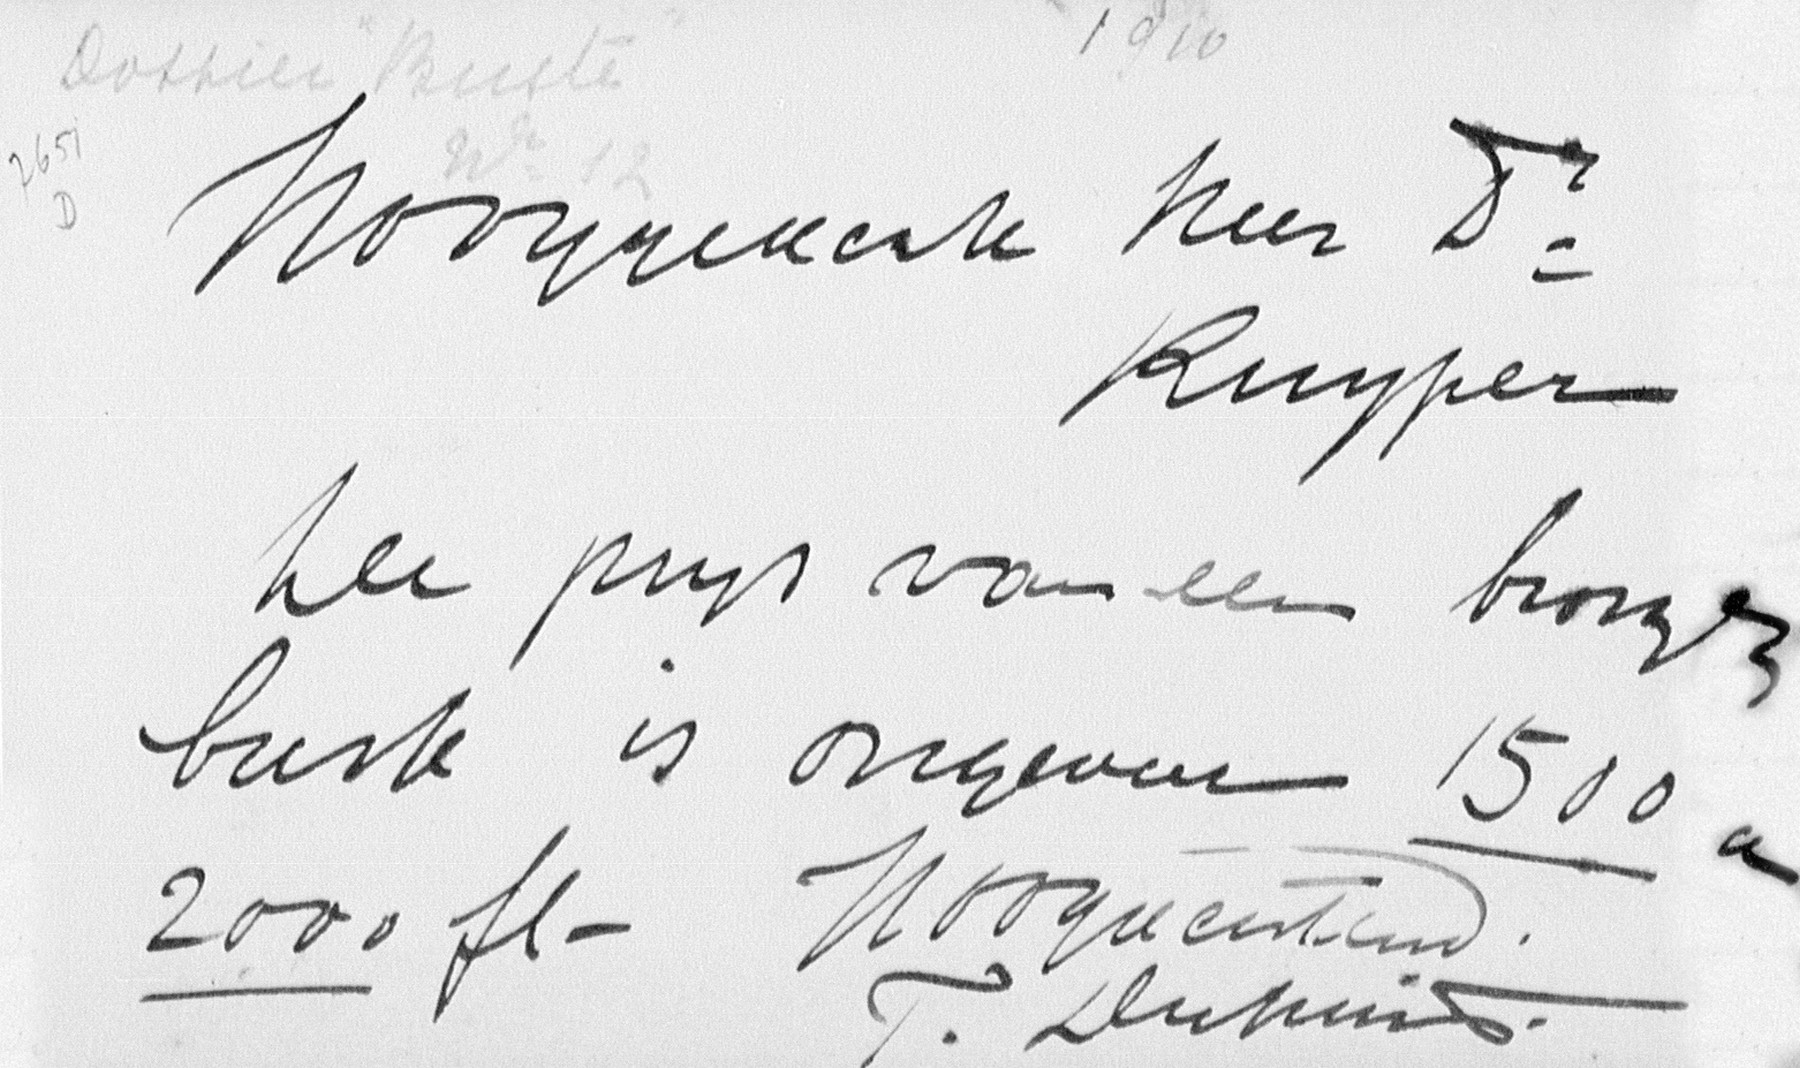 Dossier "Buste" 1910
Nr. 12
2651
D
Hooggeeerde Heer Dr.
Kuyper
De prijs van een bronzen
buste is ongeveer 1500 a
2000 fl - Hoogachtend.
T. Dupuis.